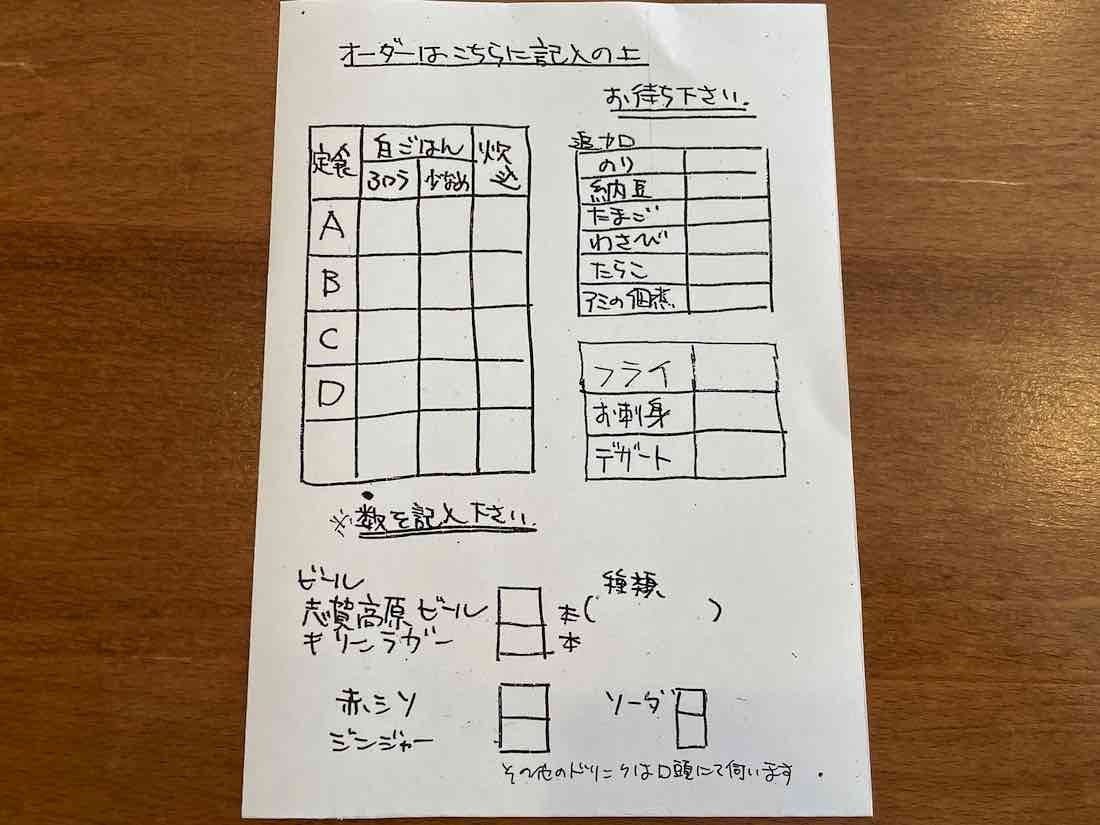 オーダーはこちらに記入の上
お待ち下さい。
定食 白ごはん 炊込
ふつう 少なめ
A
B
C
D
追加
のり
納豆
たまご
わさび
たらこ
アミの佃煮
フライ
お刺身
デザート
※数を記入下さい。
ビール
志賀高原ビール 本( 種類 )
キリンラガー 本
赤シソ ソーダ
ジンジャー
その他のドリンクは口頭にて伺います。